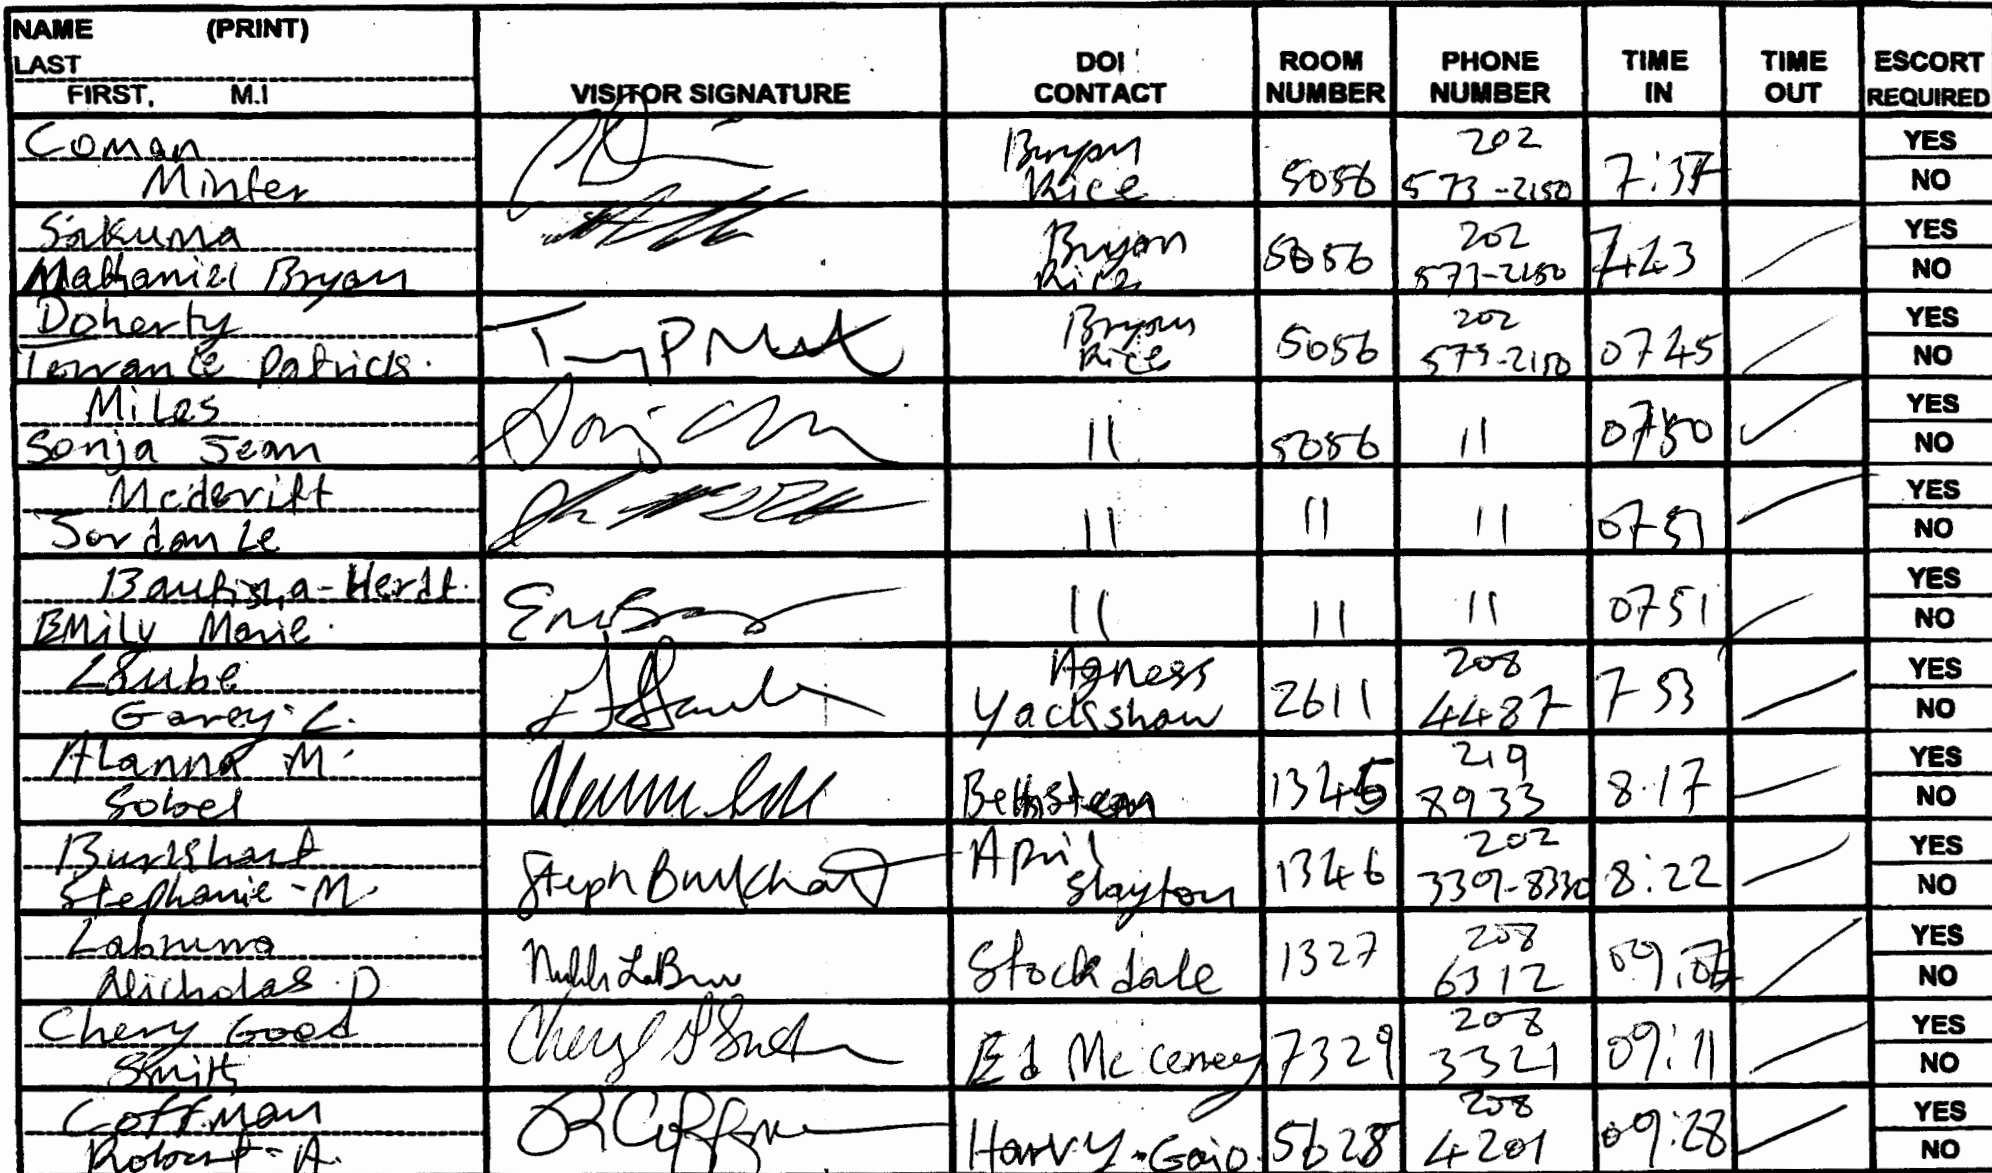 NAME (PRINT)
LAST
FIRST, M.I
VISITOR SIGNATURE
DOI CONTACT
ROOM NUMBER
PHONE NUMBER
TIME IN
TIME OUT
ESCORT REQUIRED
Coman
Minter
Bryan
Rice
5056
202
573-2150
7:37
YES
NO
Sakuma
Bryan
Bryan
Rice
5056
202
573-2150
743
YES
NO
Doherty
Terrance Patrick.
Bryan
Rice
5056
202
573-2150
0745
YES
NO
Miles
Sonja Jean
11
5056
11
0750
YES
NO
Mcdevitt
Jordan Le
11
11
11
0751
YES
NO
Bautista-Herdt.
EMily Marie.
11
11
11
0751
YES
NO
Laube
Garey L.
Agness
Yackshaw
2611
208
4487
7 53
YES
NO
ALanna M.
Sobel
1345
219
8933
8:17
YES
NO
Burkhart
Stephanie-M.
Steph Burkhart
April
Slayton
1346
202
3309-8330
8:22
YES
NO
Labruno
Nicholas.D
Stockdale
1327
208
6312
YES
NO
Chery Good
Smith
Ed McCeney
7329
208
3321
09:11
YES
NO
Coffman
Robert-A.
Harvy-Gaio
5628
208
4201
09:28
YES
NO